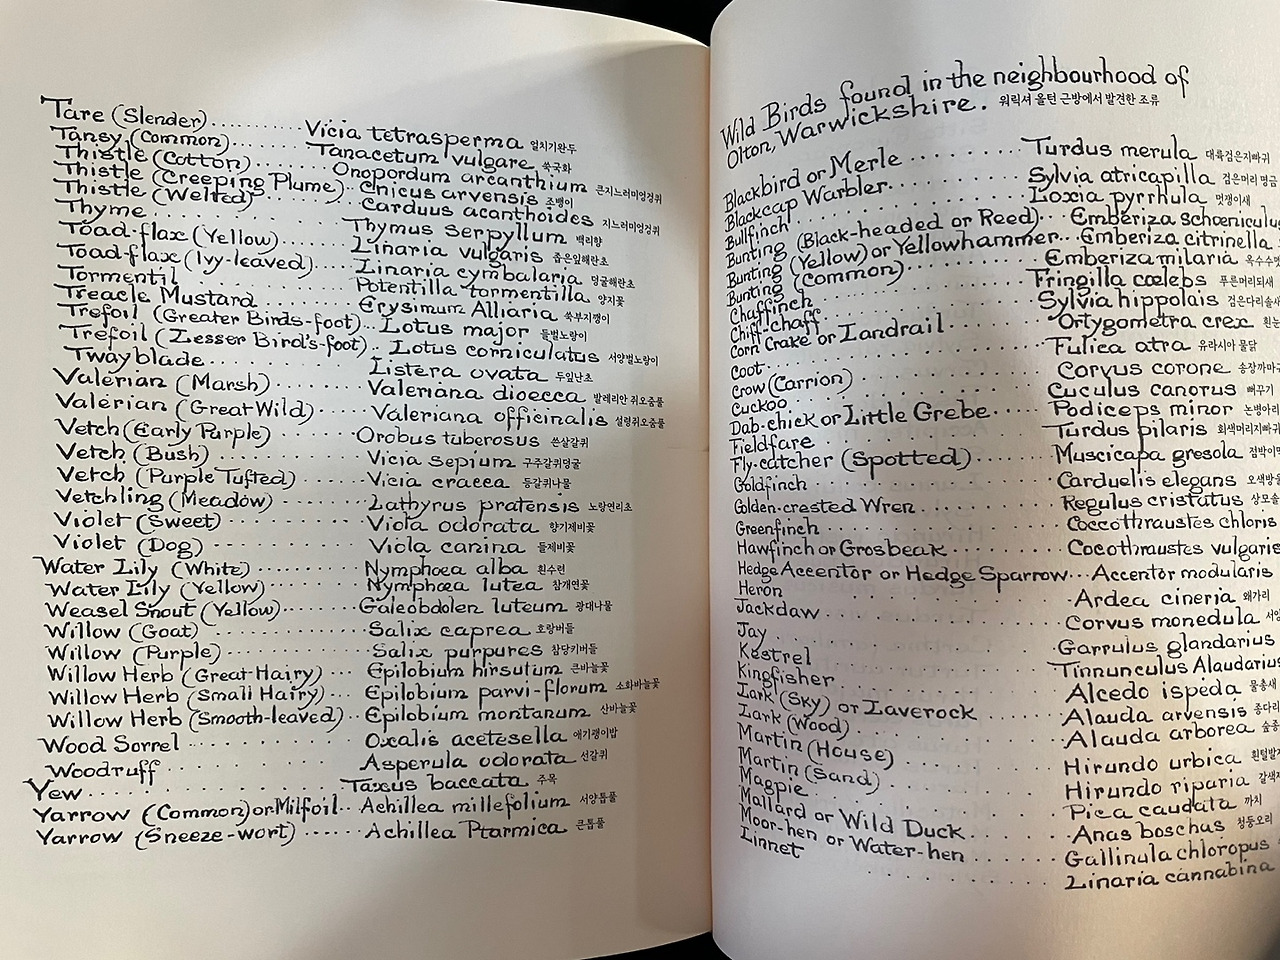 Tare (Slender) .......... Vicia tetrasperma 얼치기완두
Tansy (Common) ........ Tanacetum vulgare 쑥국화
Thistle (Cotton) ...... Onopordum arcanthium 큰지느러미엉겅퀴
Thistle (Creeping Plume) .. Cnicus arvensis 조뱅이
Thistle (Welted) ....... Carduus acanthoides 지느러미엉겅퀴
Thyme ............ Thymus serpyllum 백리향
Toad-flax (Yellow) ...... Linaria vulgaris 좁은잎해란초
Toad-flax (Ivy-leaved) .... Linaria cymbalaria 덩굴해란초
Tormentil ............ Potentilla tormentilla 양지꽃
Treacle Mustard ........ Erysimum Alliaria 쑥부지깽이
Trefoil (Greater Birds-foot) .. Lotus major 들벌노랑이
Trefoil (Lesser Bird's-foot) .. Lotus corniculatus 서양벌노랑이
Twayblade ............ Listera ovata 두잎난초
Valerian (Marsh) ........ Valeriana dioecca 발레리안 쥐오줌풀
Valerian (Great Wild) ..... Valeriana officinalis 설령쥐오줌풀
Vetch (Early Purple) ...... Orobus tuberosus 쓴살갈퀴
Vetch (Bush) .......... Vicia sepium 구주갈퀴덩굴
Vetch (Purple Tufted) ..... Vicia cracca 등갈퀴나물
Vetchling (Meadow) ...... Lathyrus pratensis 노랑연리초
Violet (Sweet) ......... Viola odorata 향기제비꽃
Violet (Dog) .......... Viola canina 들제비꽃
Water Lily (White) ....... Nymphœa alba 흰수련
Water Lily (Yellow) ...... Nymphœa lutea 참개연꽃
Weasel Snout (Yellow) ..... Galeobdolen luteum 광대나물
Willow (Goat) .......... Salix caprea 호랑버들
Willow (Purple) ......... Salix purpures 참당키버들
Willow Herb (Great Hairy) ... Epilobium hirsutum 큰바늘꽃
Willow Herb (Small Hairy) ... Epilobium parvi-florum 소화바늘꽃
Willow Herb (Smooth-leaved) .. Epilobium montanum 산바늘꽃
Wood Sorrel ........... Oxalis acetesella 애기괭이밥
Woodruff ............ Asperula odorata 선갈퀴
Yew ............... Taxus baccata 주목
Yarrow (Common) or Milfoil .. Achillea millefolium 서양톱풀
Yarrow (Sneeze-wort) ..... Achillea Ptarmica 큰톱풀
Wild Birds found in the neighbourhood of
Olton, Warwickshire. 워릭셔 올턴 근방에서 발견한 조류
Blackbird or Merle ........ Turdus merula 대륙검은지빠귀
Blackcap Warbler ........ Sylvia atricapilla 검은머리 명금
Bullfinch ............ Loxia pyrrhula 멋쟁이새
Bunting (Black-headed or Reed) ... Emberiza schœniculus
Bunting (Yellow) or Yellowhammer ... Emberiza citrinella
Bunting (Common) ........ Emberiza milaria
Chaffinch ............ Fringilla cœlebs 푸른머리되새
Chiff-chaff ........... Sylvia hippolais
Corn Crake or Landrail ...... Ortygometra crex
Coot ............... Fulica atra 유라시아 물닭
Crow (Carrion) ......... Corvus corone
Cuckoo .............. Cuculus canorus 뻐꾸기
Dab-chick or Little Grebe .... Podiceps minor
Fieldfare ............ Turdus pilaris 회색머리지빠귀
Fly-catcher (Spotted) ..... Muscicapa gresola
Goldfinch ............ Carduelis elegans
Golden-crested Wren ....... Regulus cristatus
Greenfinch ........... Coccothraustes chloris
Hawfinch or Grosbeak ...... Cocothraustes vulgaris
Hedge Accentor or Hedge Sparrow ... Accentor modularis
Heron .............. Ardea cineria 왜가리
Jackdaw ............. Corvus monedula
Jay ............... Garrulus glandarius
Kestrel ............. Tinnunculus Alaudarius
Kingfisher ........... Alcedo ispeda 물총새
Lark (Sky) or Laverock ..... Alauda arvensis 종다리
Lark (Wood) ........... Alauda arborea
Martin (House) ......... Hirundo urbica
Martin (Sand) .......... Hirundo riparia
Magpie .............. Pica caudata 까치
Mallard or Wild Duck ...... Anas boschas 청둥오리
Moor-hen or Water-hen ..... Gallinula chloropus
Linnet ............. Linaria cannabina